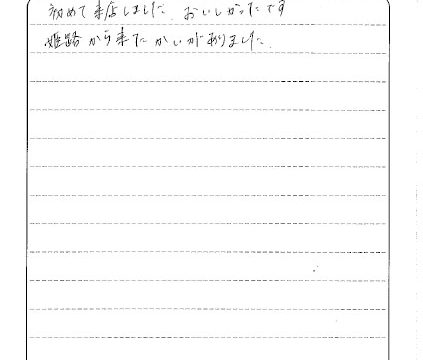 初めて来店しました おいしかったです
姫路から来たかいがありました